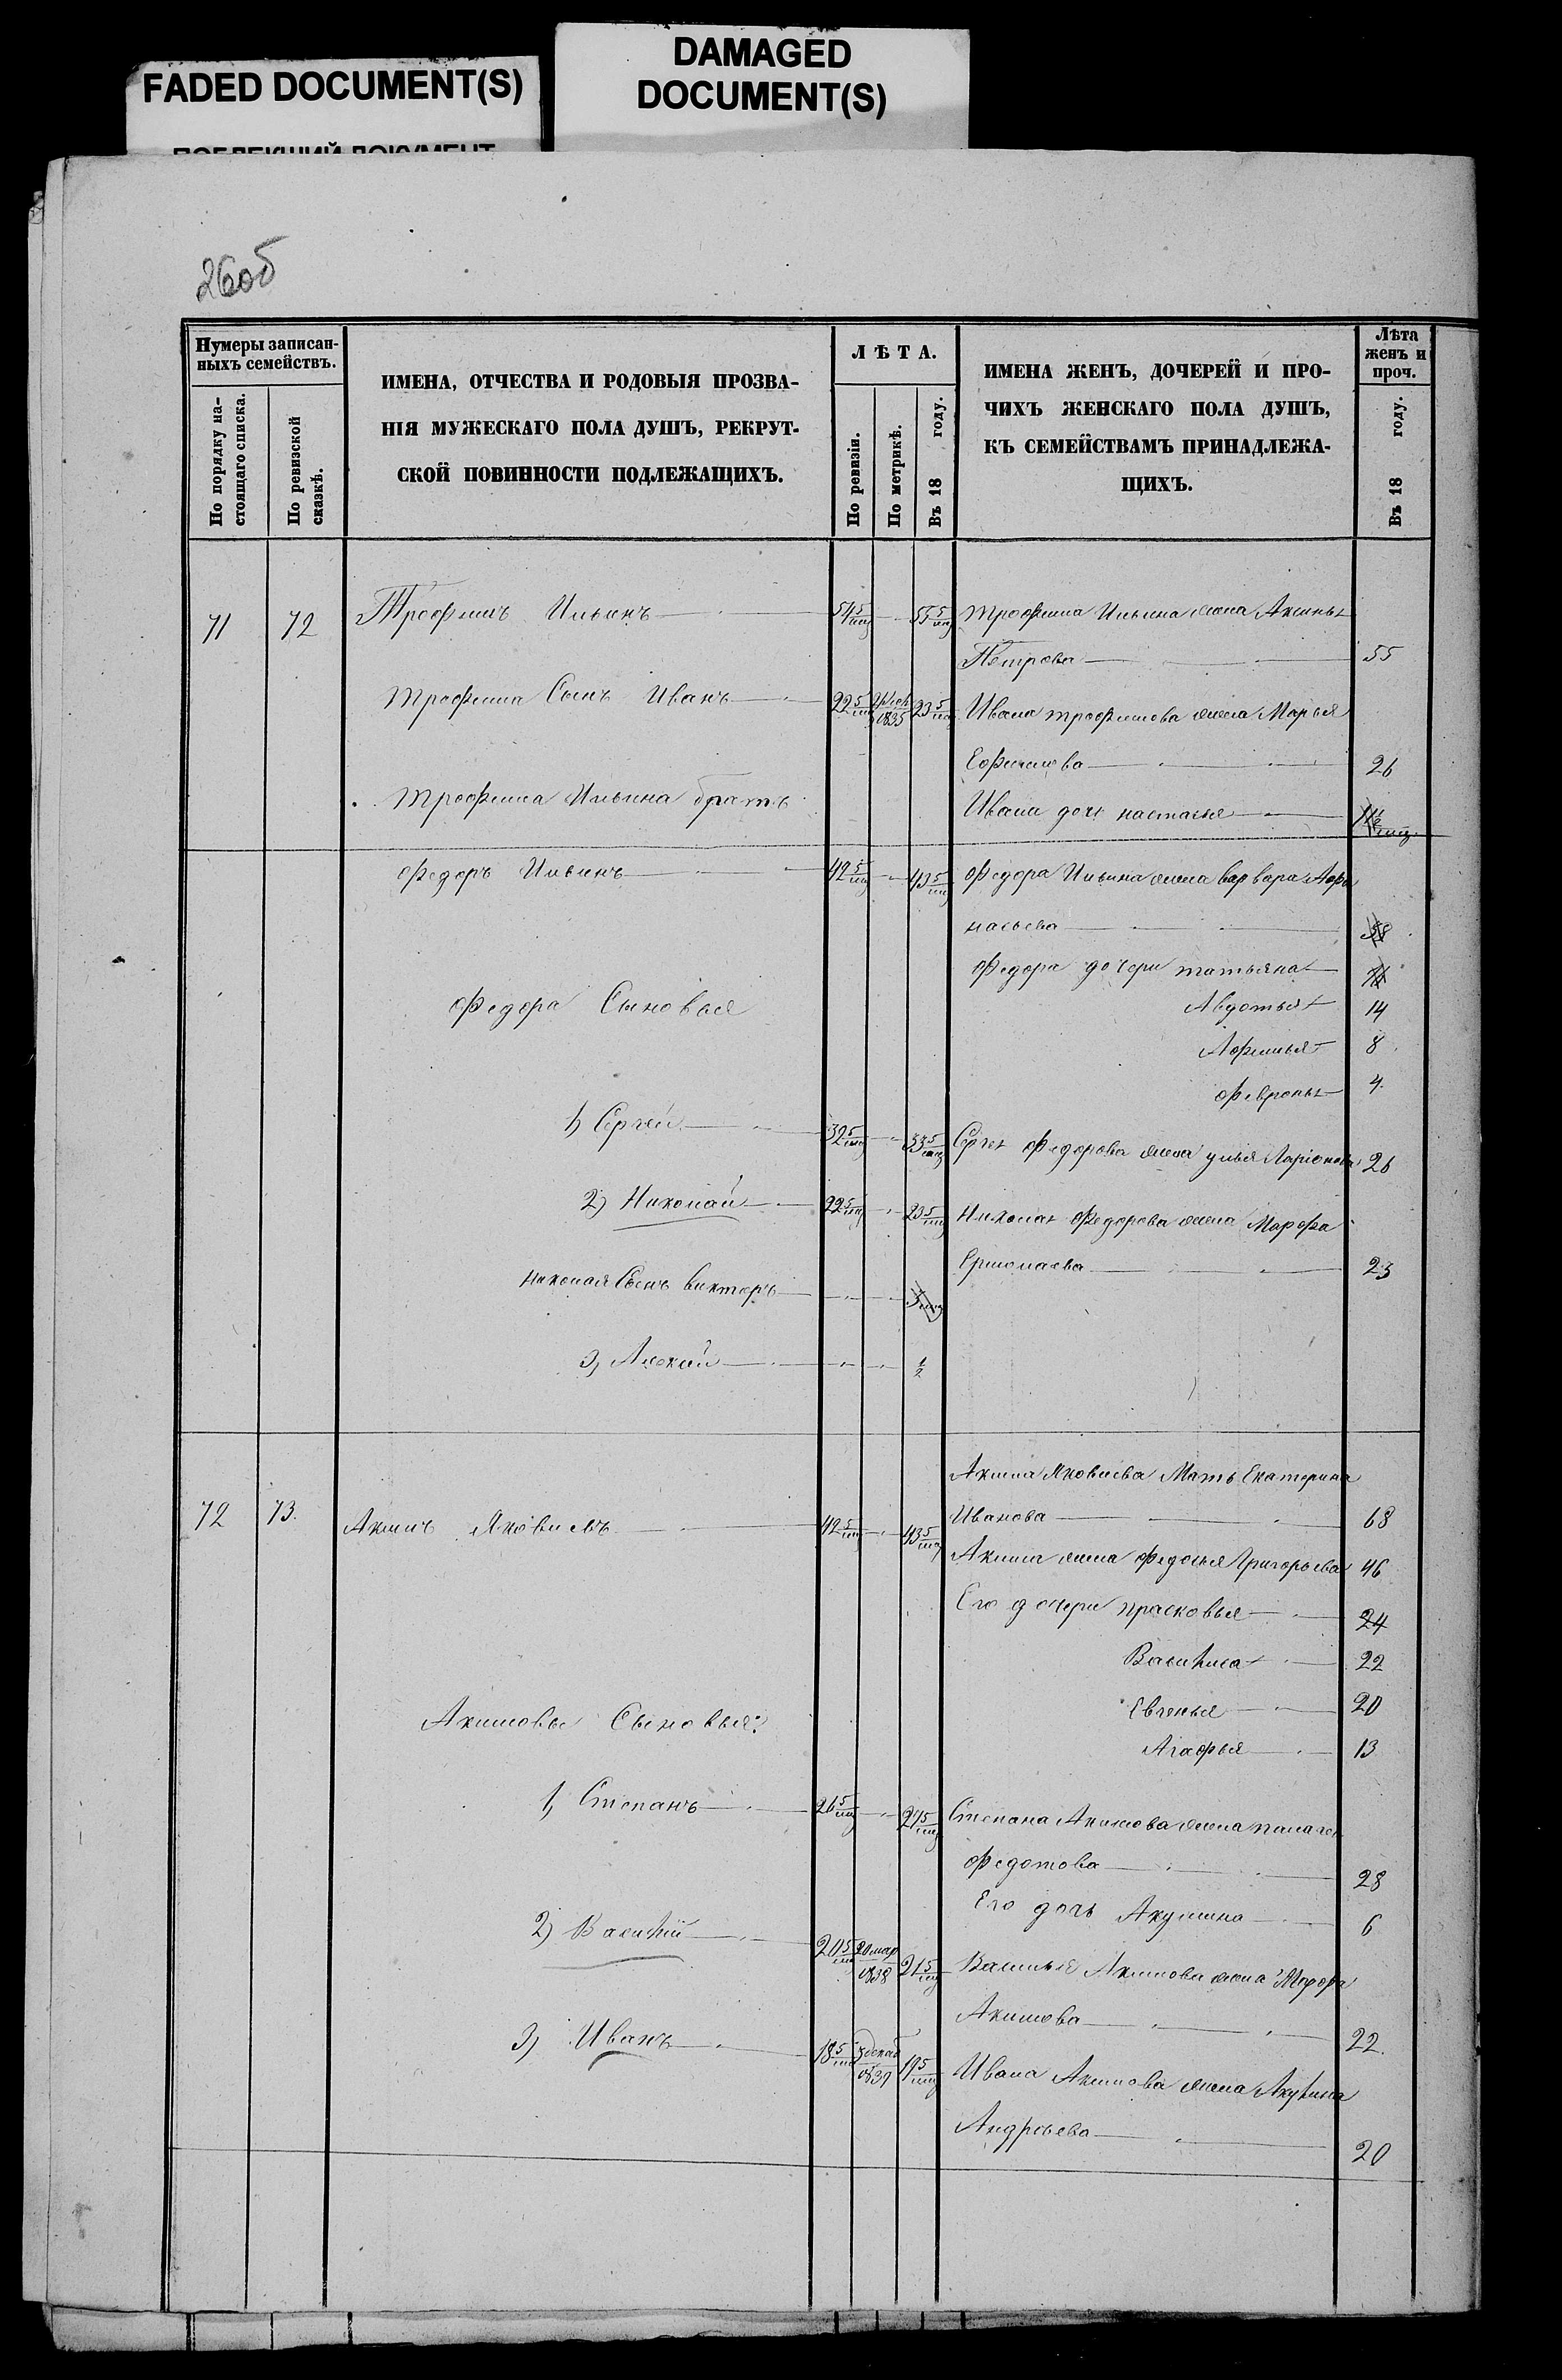 FADED DOCUMENT(S)
DAMAGED
DOCUMENT(S)
ПОБЛЕКШИЙ ДОКУМЕНТ
26об
Нумеры записан-
ныхъ семействъ.
По порядку на-
стоящаго списка.
По ревизской
сказкѣ.
ИМЕНА, ОТЧЕСТВА И РОДОВЫЯ ПРОЗВА-
НІЯ МУЖЕСКАГО ПОЛА ДУШЪ, РЕКРУТ-
СКОЙ ПОВИННОСТИ ПОДЛЕЖАЩИХЪ.
ЛѢТА.
По ревизіи.
По метрикѣ.
Въ 18 году.
ИМЕНА ЖЕНЪ, ДОЧЕРЕЙ И ПРО-
ЧИХЪ ЖЕНСКАГО ПОЛА ДУШЪ,
КЪ СЕМЕЙСТВАМЪ ПРИНАДЛЕЖА-
ЩИХЪ.
Лѣта
женъ и
проч.
Въ 18 году.
71 72 Трофимъ Ильинъ 54 5/мц 55 5/мц Трофима Ильина жена Аксинья
Петрова 55
Трофима Сынъ Иванъ 22 5/мц 1835 23 5/мц Ивана трофимова жена Марья
Ефимова 26
Трофима Ильина братъ Ивана дочь настасья
Федоръ Ильинъ 42 5/мц 43 5/мц Федора Ильина жена варвара Афа
насьева 38
Федора дочери татьяна
Федора Сыновья Авдотья 14
Афимья 8
Февронья 4
1) Сергей 32 5/мц 33 5/мц Сергея Федорова жена улья Ларіонова 26
2) Николай 22 5/мц 23 5/мц Николая Федорова жена Марфа
Ермолаева 23
Николая Сынъ викторъ 3 мц
3) Алексѣй 1/2
Акима Яковлева Мать Екатерина
72 73. Акимъ Яковлевъ 42 5/мц 43 5/мц Иванова 68
Акима жена федосья Григорьева 46
Его дочери прасковья 24
Василиса 22
Евгенья 20
Акимовы Сыновья: Агафья 13
1, Степанъ 26 5/мц 27 5/мц Степана Акимова жена палагея
Федотова 28
Его дочь Акулина 6
2) Василій 20 5/мц 20 мар 1838 21 5/мц Василья Акимова жена Марфа
Акимова 22.
3) Иванъ 18 5/мц декаб 1839 19 5/мц Ивана Акимова жена Акулина
Андреева 20